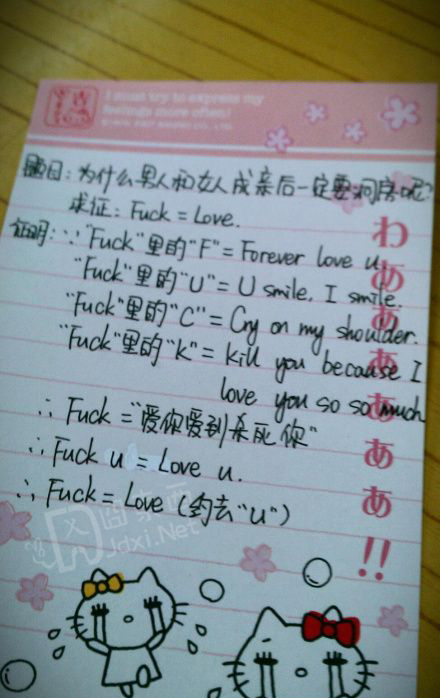 I must try to express my
feelings more often!
题目:为什么男人和女人成亲后一定要洞房呢?
求证:Fuck = Love.
证明:∵"Fuck"里的"F"= Forever love u.
"Fuck"里的"U"= U smile, I smile.
"Fuck"里的"C"= Cry on my shoulder.
"Fuck"里的"K"= kill you because I
love you so so much
∴ Fuck ="爱你爱到杀死你"
∴ Fuck u = Love u.
∴ Fuck = Love (约去"u")
わああああああ!!
囧东西
Jdxi.Net